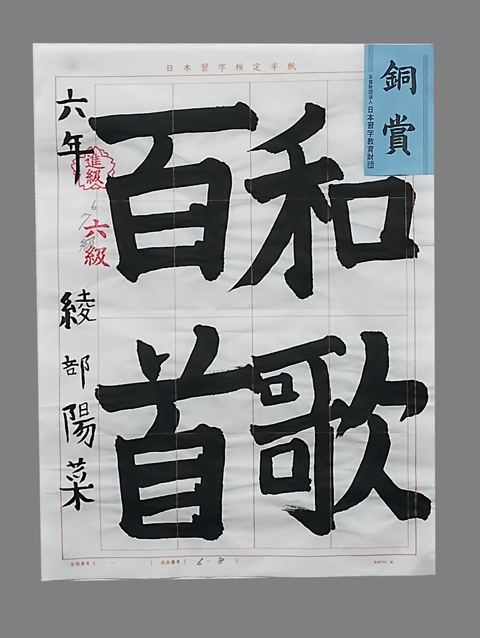 日本習字検定半紙
銅賞
公益財団法人 日本習字教育財団
和歌
百首
六年
進級
六級
綾部陽菜
6-8